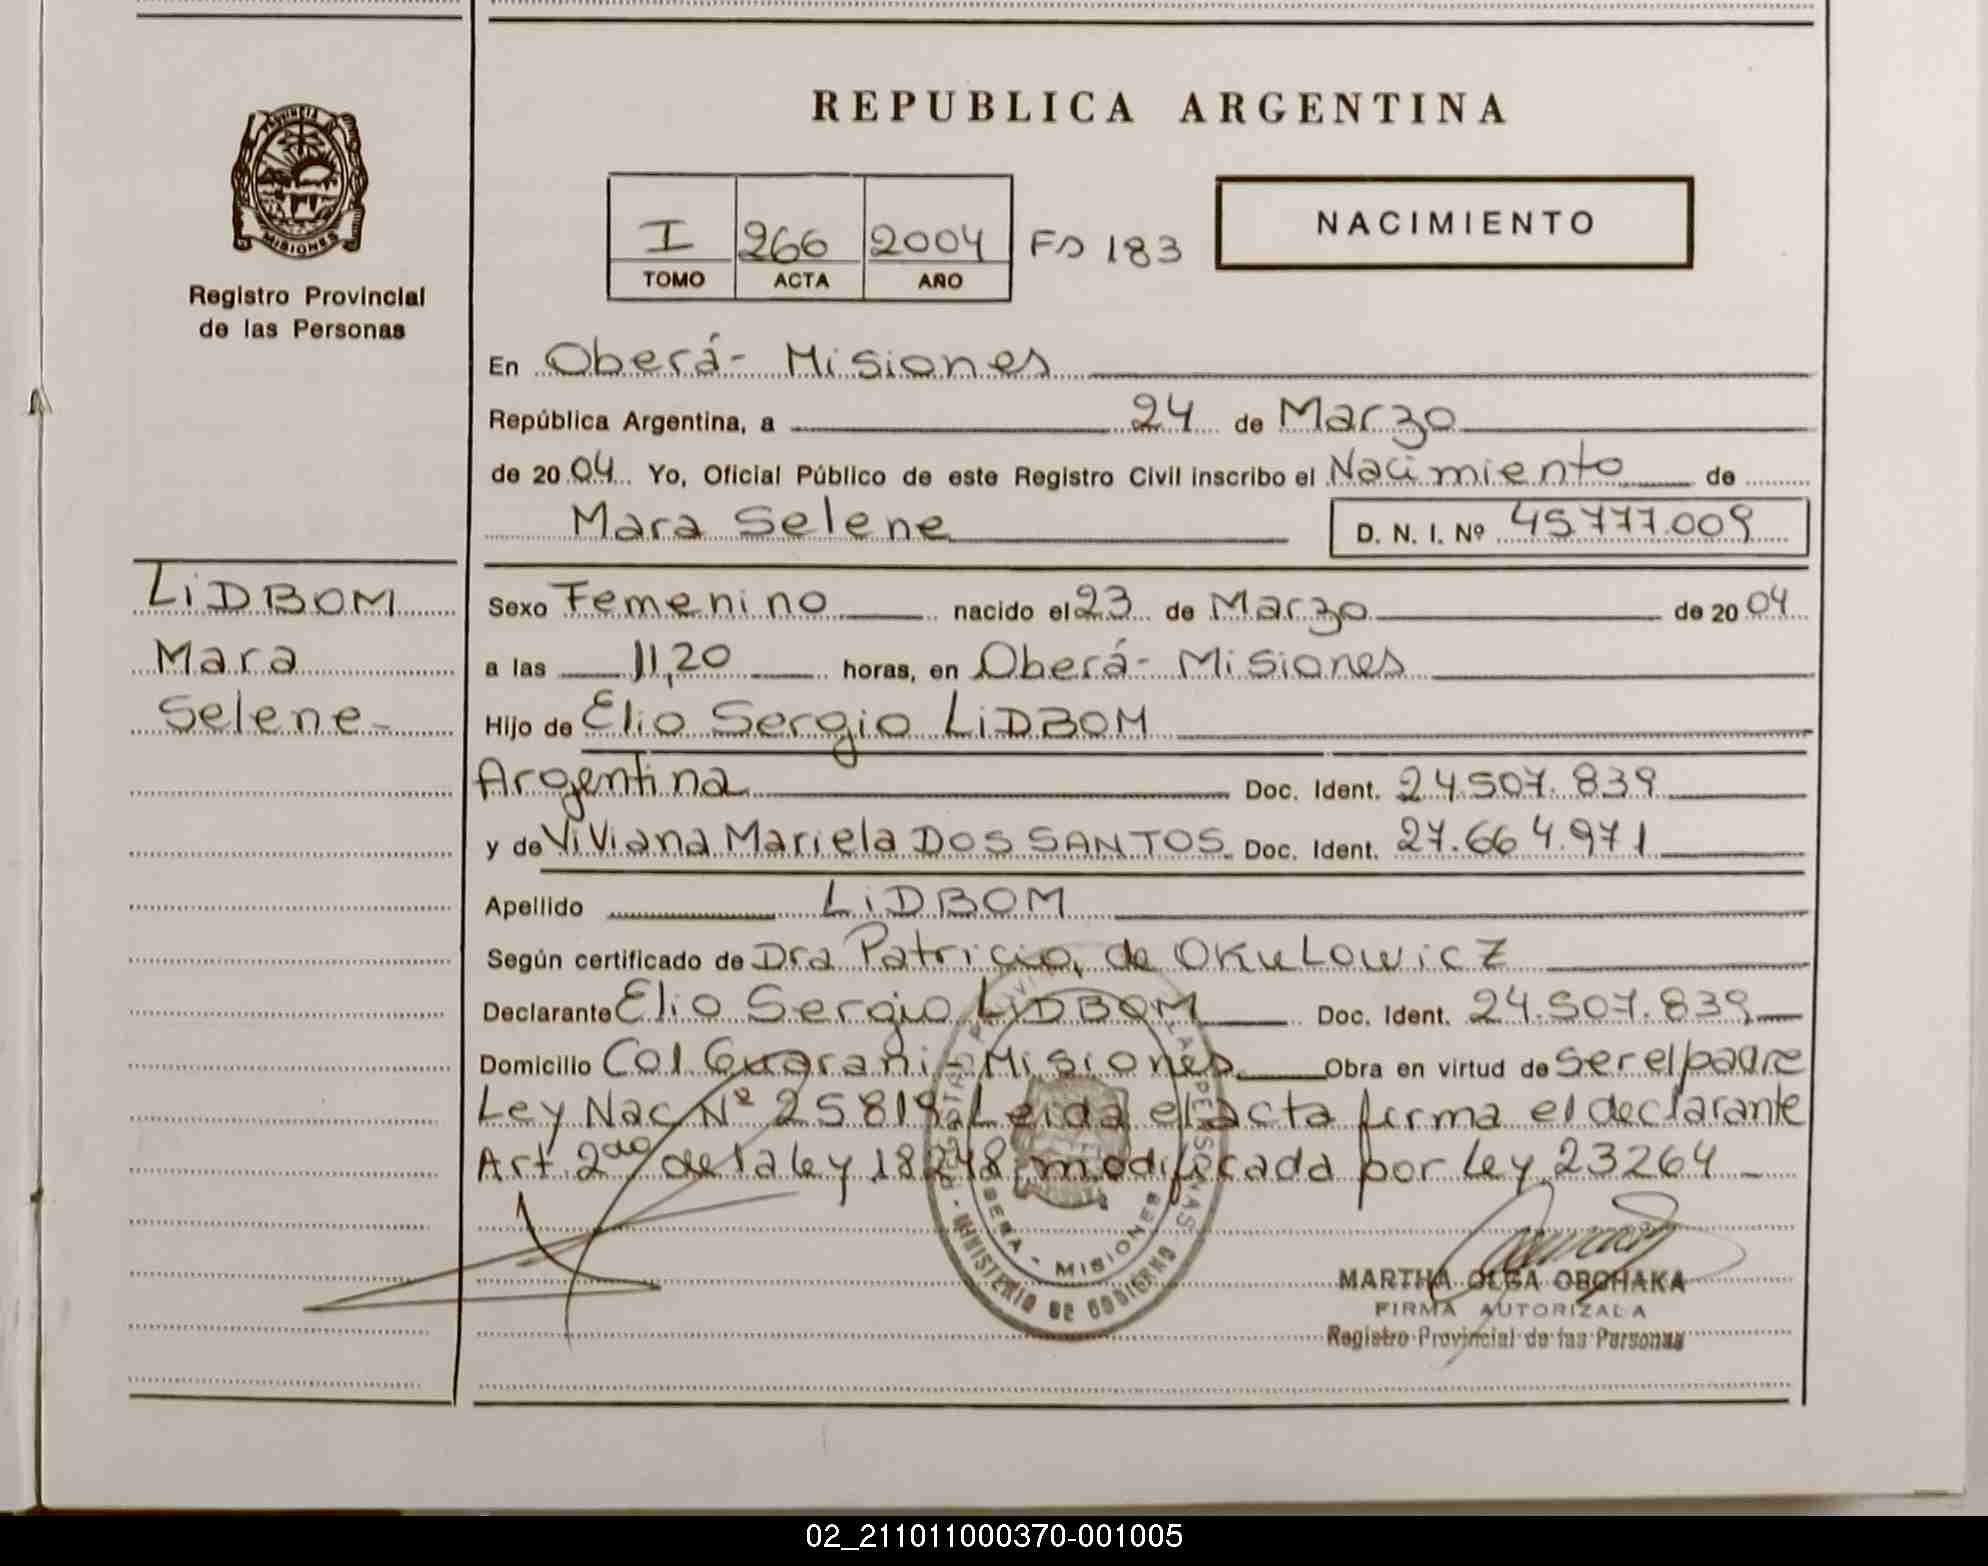 REPUBLICA ARGENTINA
PROVINCIA DE MISIONES
Registro Provincial
de las Personas
I 266 2004 Fs 183
TOMO ACTA AÑO
NACIMIENTO
En Oberá - Misiones
República Argentina, a 24 de Marzo
de 2004 Yo, Oficial Público de este Registro Civil inscribo el Nacimiento de
Mara Selene D. N. I. Nº 45777.009
LiDBOM
Mara
Selene-
Sexo Femenino nacido el 23 de Marzo de 2004
a las 11,20 horas, en Oberá - Misiones
Hijo de Elio Sergio LiDBOM
Argentina Doc. Ident. 24.507.839
y de Viviana Mariela DOS SANTOS Doc. Ident. 27.664.971
Apellido LiDBOM
Según certificado de Dra Patricia de OKuLowicz
Declarante Elio Sergio LiDBOM Doc. Ident. 24.507.839
Domicilio Col Guarani - Misiones Obra en virtud de ser el padre
Ley Nac Nº 25819. Leida el acta firma el declarante
Art. 2do de la ley 18248, modificada por Ley 23264
MINISTERIO DE GOBIERNO
OBERA - MISIONES
MARTHA OLGA OBOHAKA
FIRMA AUTORIZADA
Registro Provincial de las Personas
02_211011000370-001005